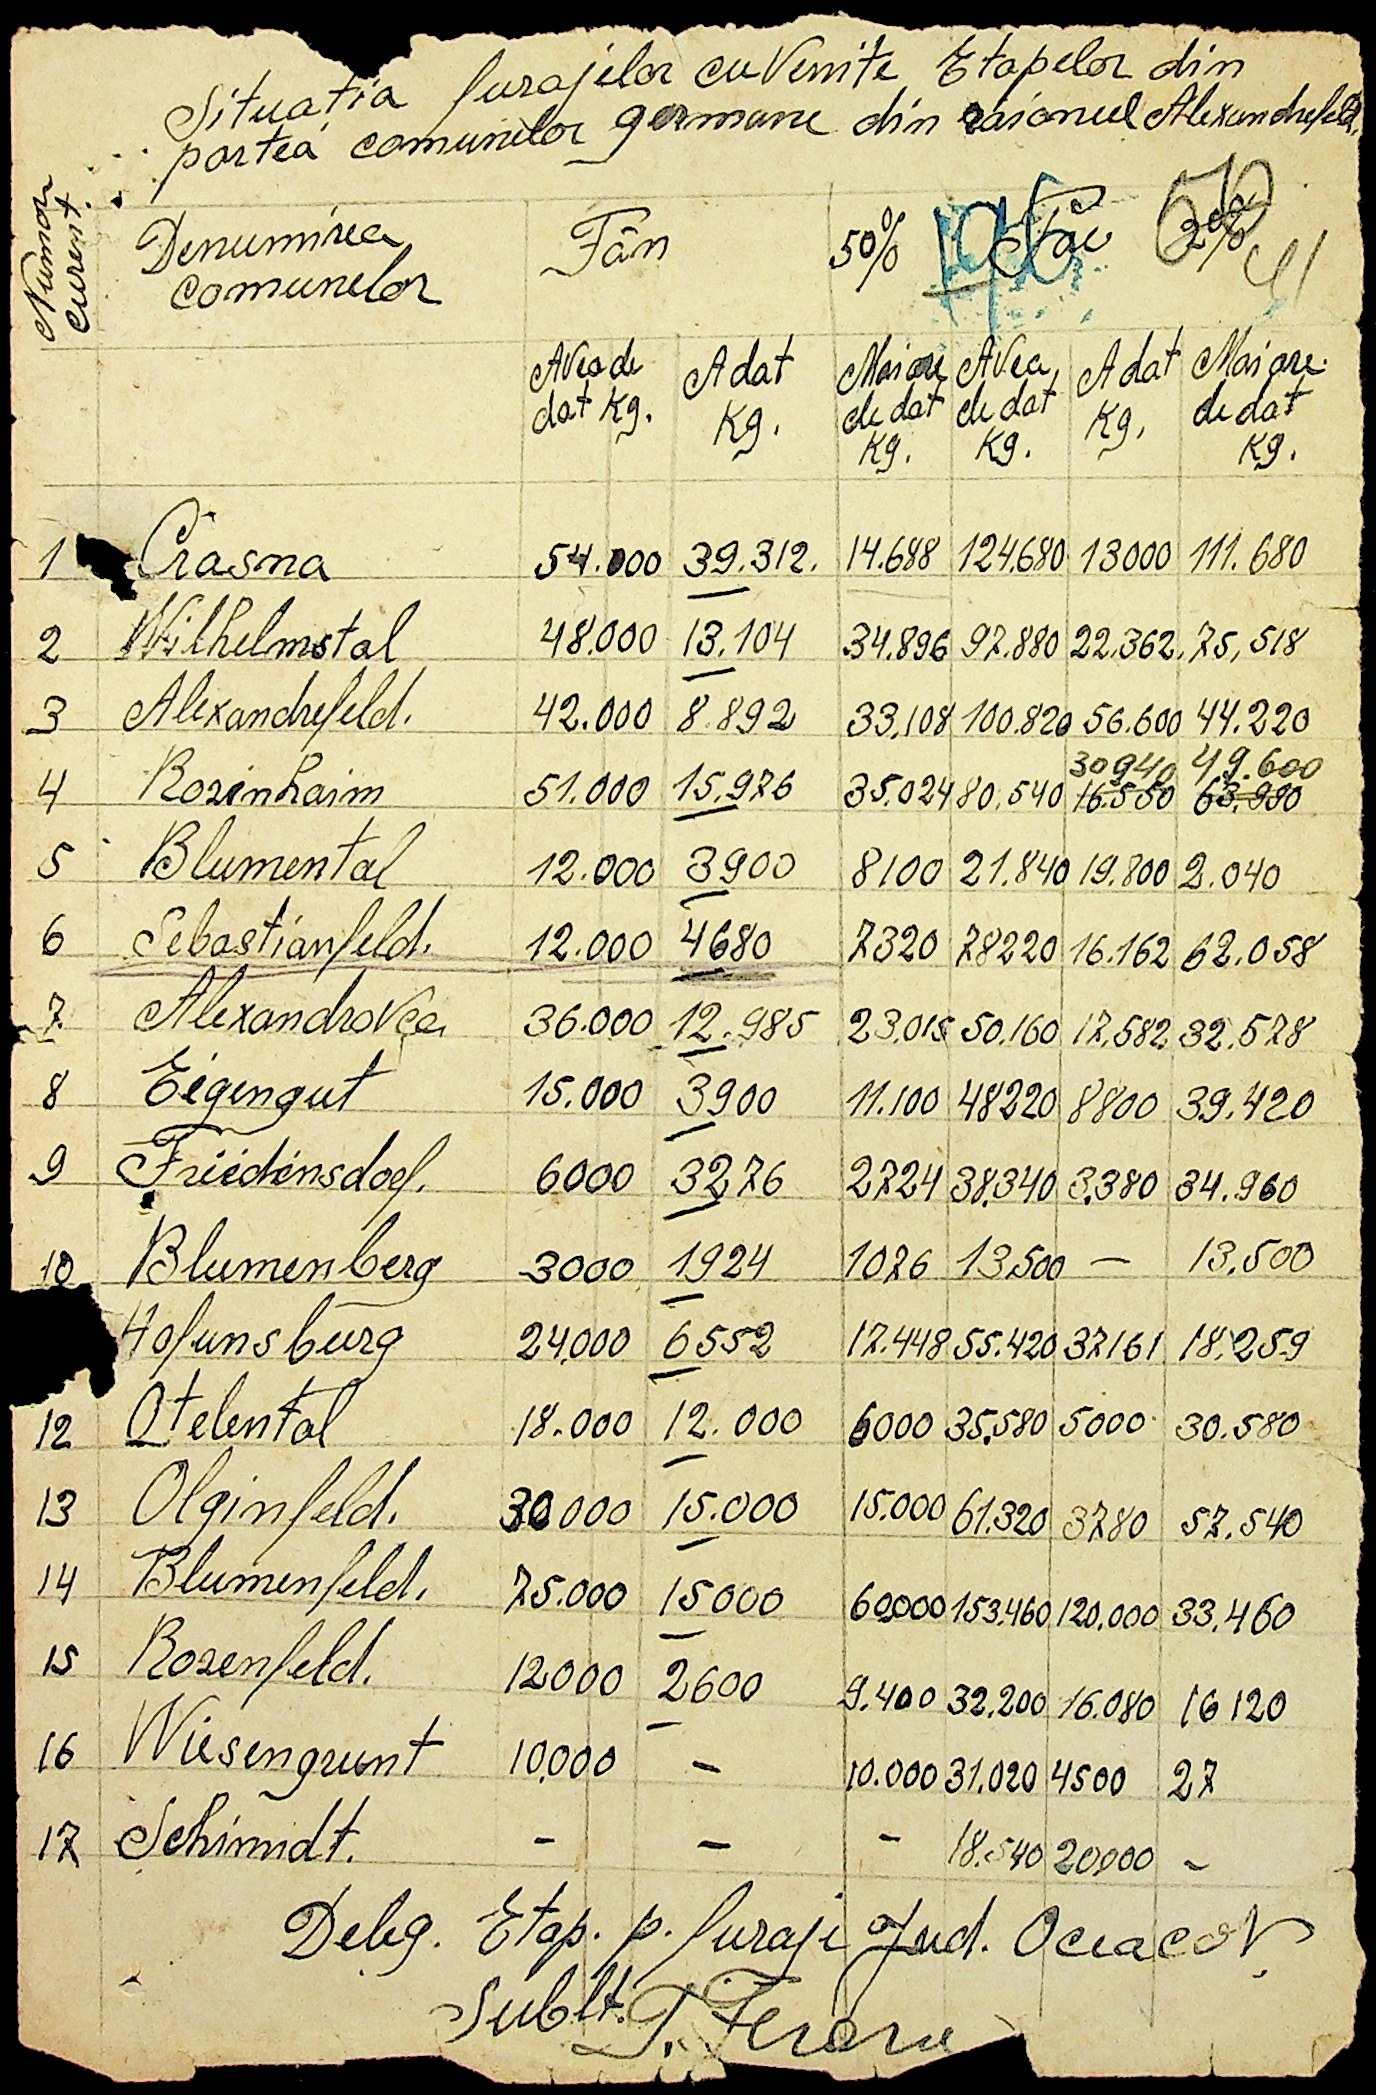 Situația furajelor cuvenite Etapelor din
partea comunelor germane din raionul Alexandrefeld.
Numor curent.
Denumirea comunelor
Fân
50%
20%
Avea de dat Kg.
A dat Kg.
Mai are de dat Kg.
Avea de dat Kg.
A dat Kg.
Mai are de dat Kg.
1 Crasna 54.000 39.312. 14.688 124.680 13000 111.680
2 Wilhelmstal 48.000 13.104 34.896 97.880 22.362. 75,518
3 Alexandrefeld. 42.000 8.892 33.108 100.820 56.600 44.220
30940 49.600
4 Rozinhaim 51.000 15.976 35.024 80.540 16.550 63.990
5 Blumental 12.000 3900 8100 21.840 19.800 2.040
6 Sebastianfeld. 12.000 4680 7320 78220 16.162 62.058
7. Alexandrovca 36.000 12.985 23.015 50.160 17.582 32.578
8 Eigengut 15.000 3900 11.100 48220 8800 39.420
9 Friedinsdorf. 6000 3276 2724 38.340 3.380 34.960
10 Blumenberg 3000 1924 1076 13.500 — 13.500
Hofunsburg 24.000 6552 17.448 55.420 37161 18.259
12 Otelental 18.000 12.000 6000 35.580 5000 30.580
13 Olginfeld. 30.000 15.000 15.000 61.320 3780 57.540
14 Blumenfeld. 75.000 15000 60.000 153.460 120.000 33.460
15 Rozenfeld. 12000 2600 9.400 32.200 16.080 16120
16 Wiesengrunt 10.000 - 10.000 31.020 4500 27
17 Schimidt. - - - 18.540 20.000 -
Deleg. Etap. p. furaje Jud. Oceacov
Sublt.